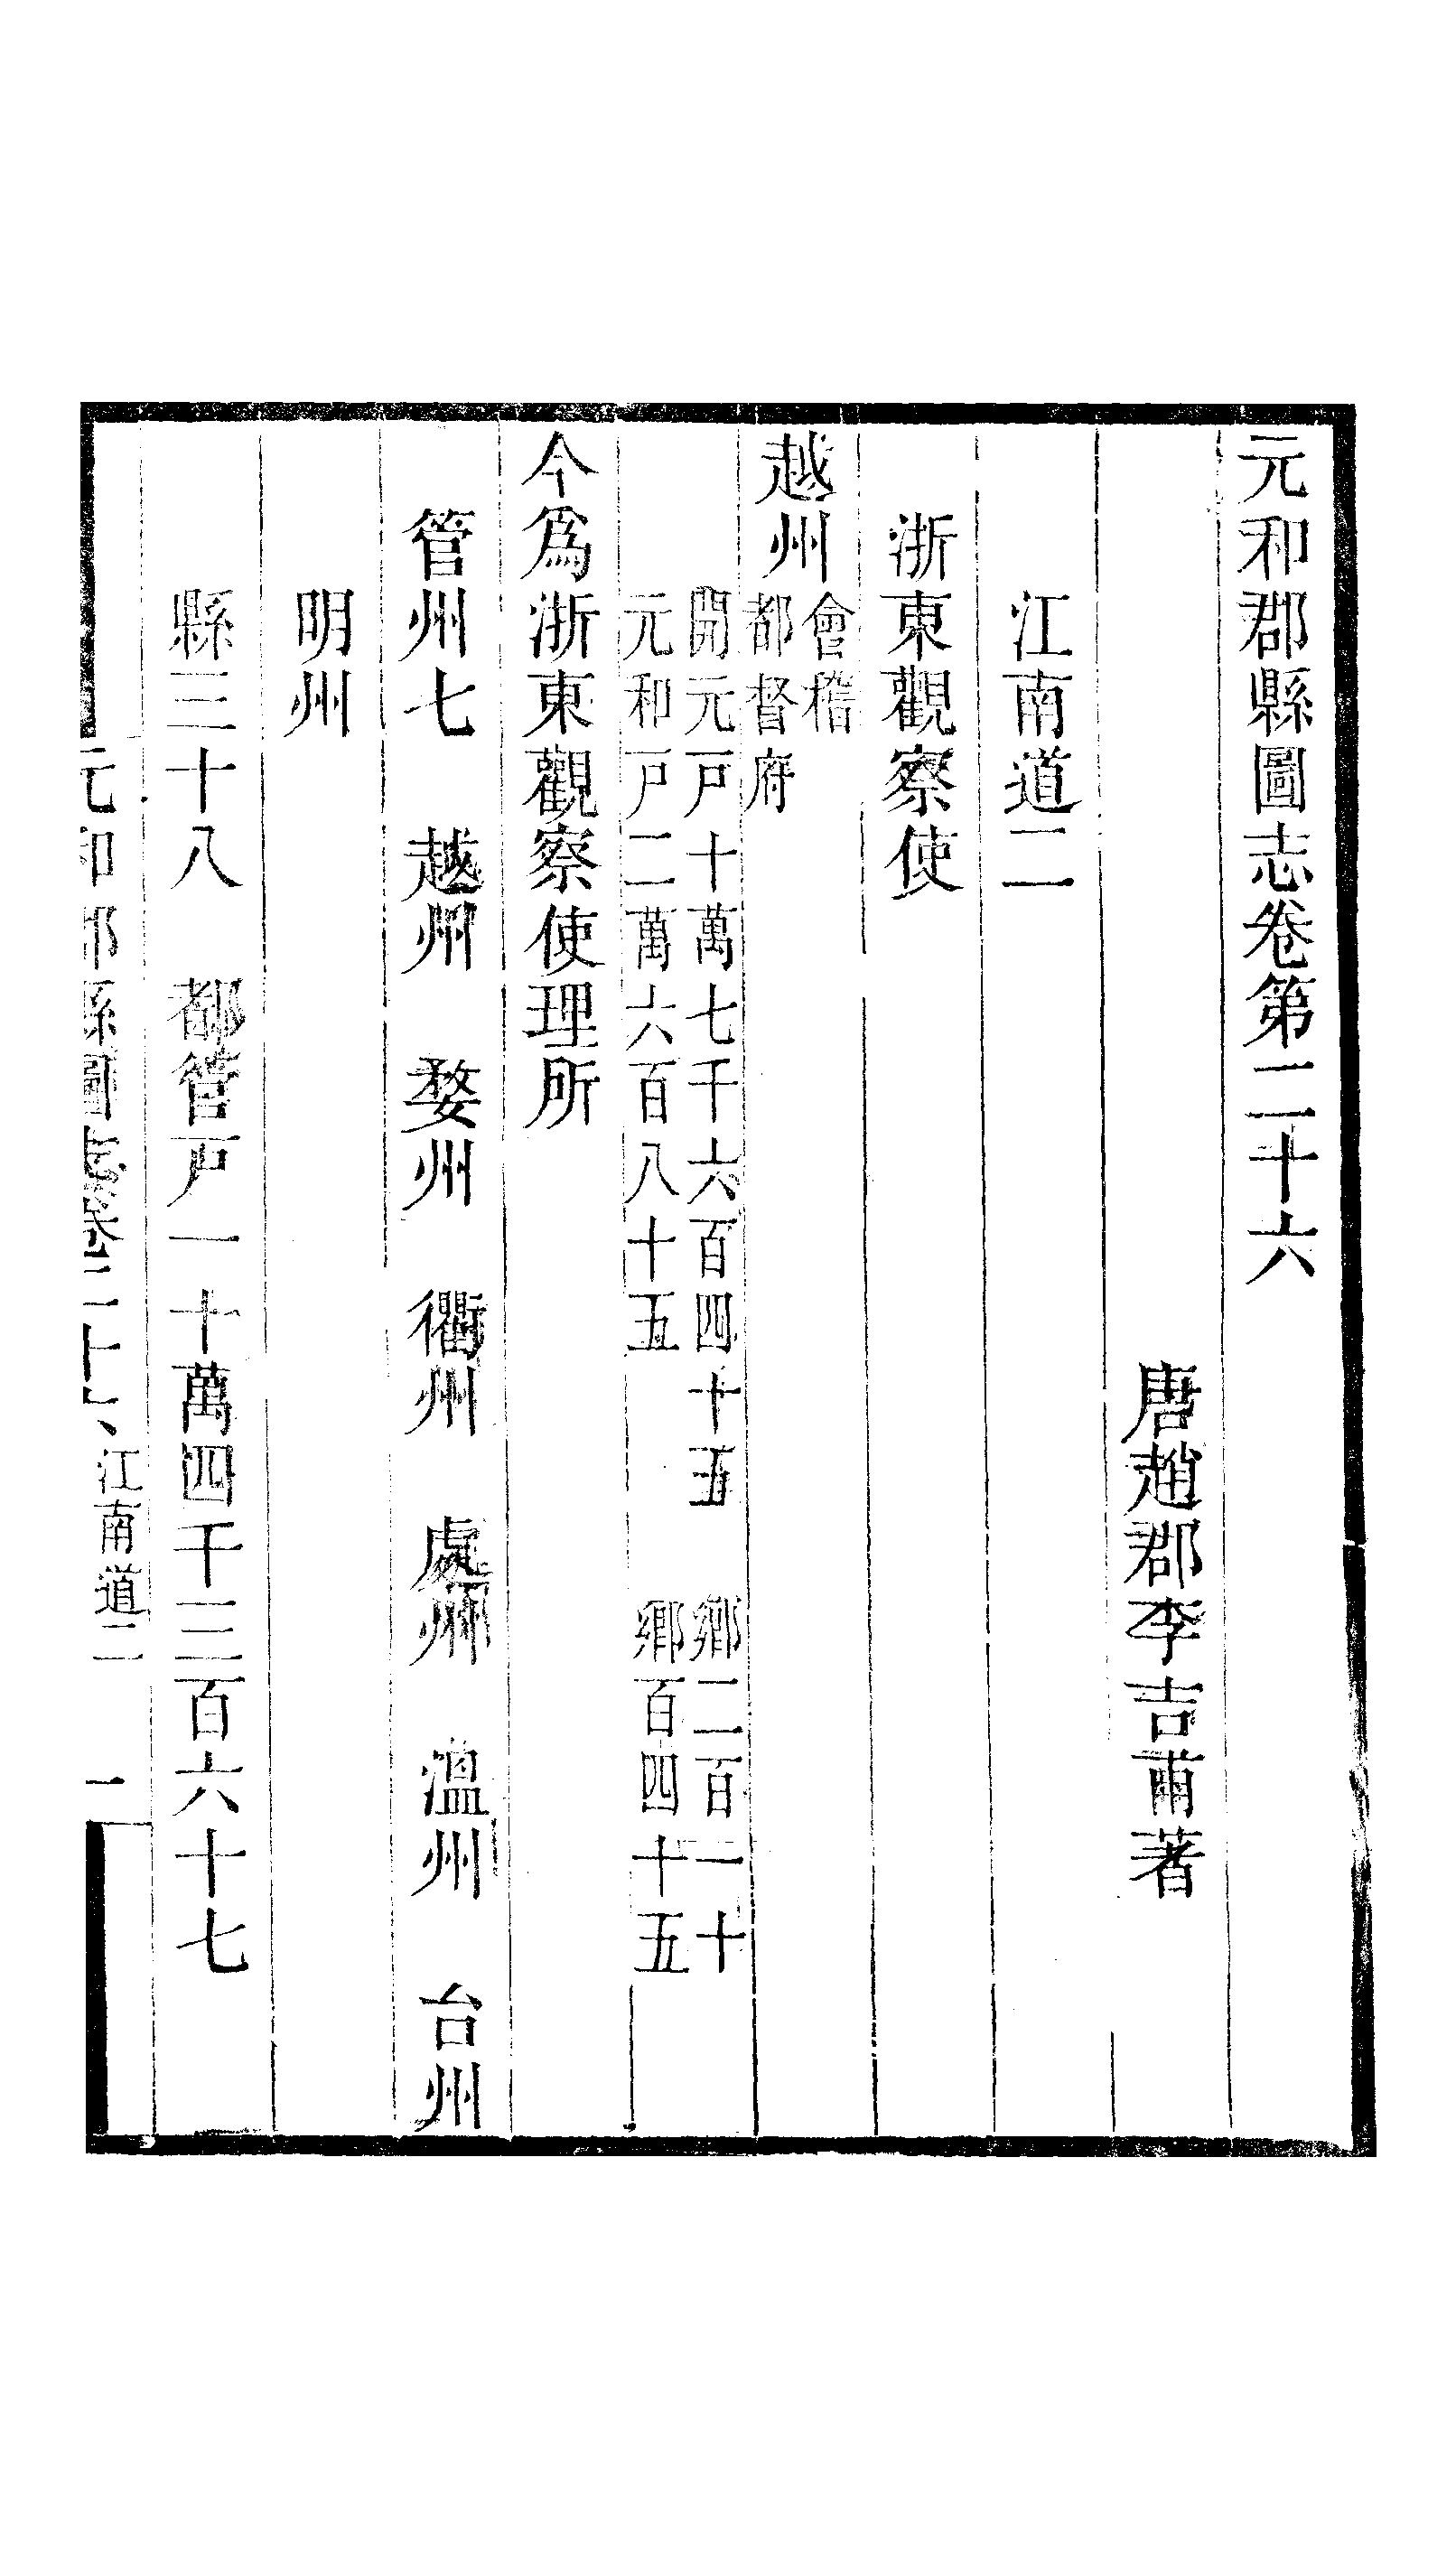 元和郡縣圖志卷第二十六
唐趙郡李吉甫著
江南道二
浙東觀察使
越州
會稽
都督府
開元戸十萬七千六百四十五　鄉二百一十
元和戸二萬六百八十五　鄉百四十五
今爲浙東觀察使理所
管州七　越州　婺州　衢州　處州　溫州　台州
明州
縣三十八　都管戸一十萬四千三百六十七
元和郡縣圖志卷二十六　江南道二　一